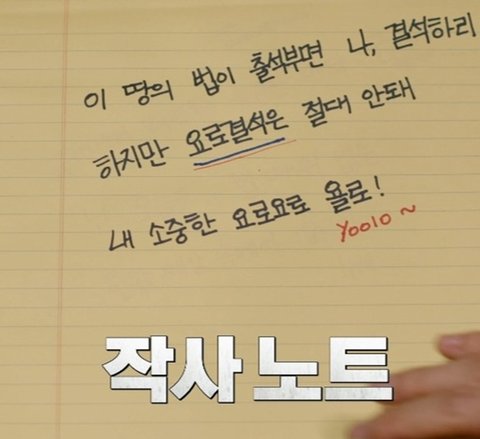 이 땅의 법이 출석부면 나, 결석하리
하지만 요로결석은 절대 안돼
내 소중한 요로요로 욜로!
Yoolo ~
작사 노트